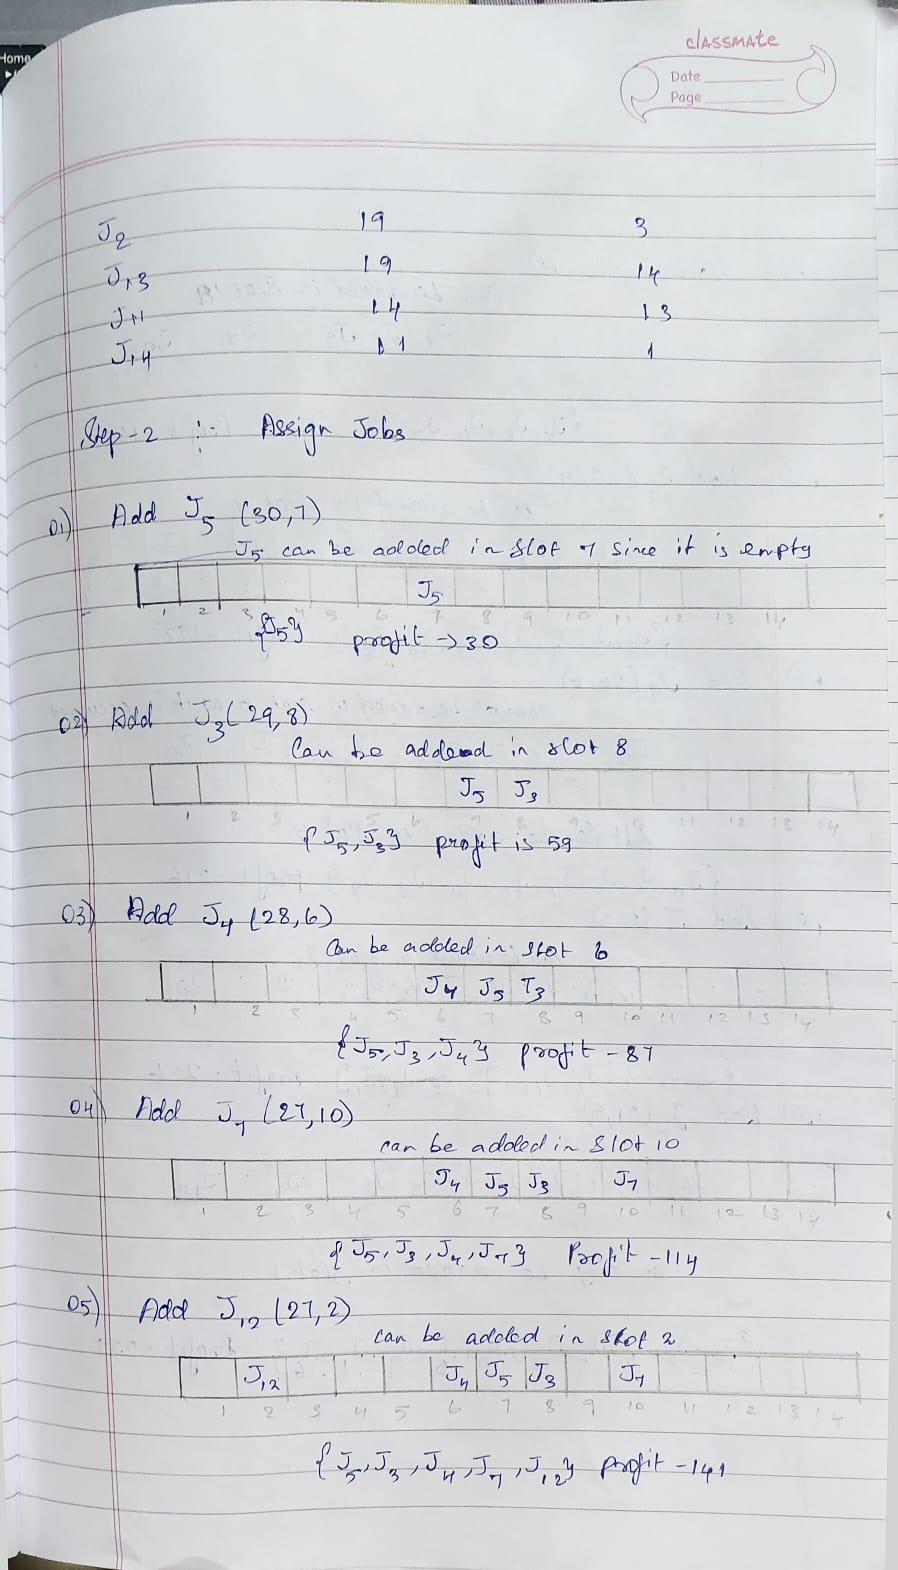 Home
classmate
Date
Page
J2 19 3
J13 19 14
J11 14 13
J14 11 1
Step-2 :- Assign Jobs
01) Add J5 (30,7)
J5 can be added in slot 7 since it is empty
J5
1 2 3 4 5 6 7 8 9 10 11 12 13 14
{J5} profit → 30
02) Add J3 (29,8)
Can be added in slot 8
J5 J3
1 2 3 5 6 7 8 9 11 12 13 14
{J5, J3} profit is 59
03) Add J4 (28,6)
Can be added in slot 6
J4 J5 J3
1 2 3 4 5 6 7 8 9 10 11 12 13 14
{J5, J3, J4} profit - 87
04) Add J7 (27,10)
can be added in slot 10
J4 J5 J3 J7
1 2 3 4 5 6 7 8 9 10 11 12 13 14
{J5, J3, J4, J7} Profit - 114
05) Add J12 (27,2)
can be added in slot 2
J12 J4 J5 J3 J7
1 2 3 4 5 6 7 8 9 10 11 12 13 14
{J5, J3, J4, J7, J12} profit - 141